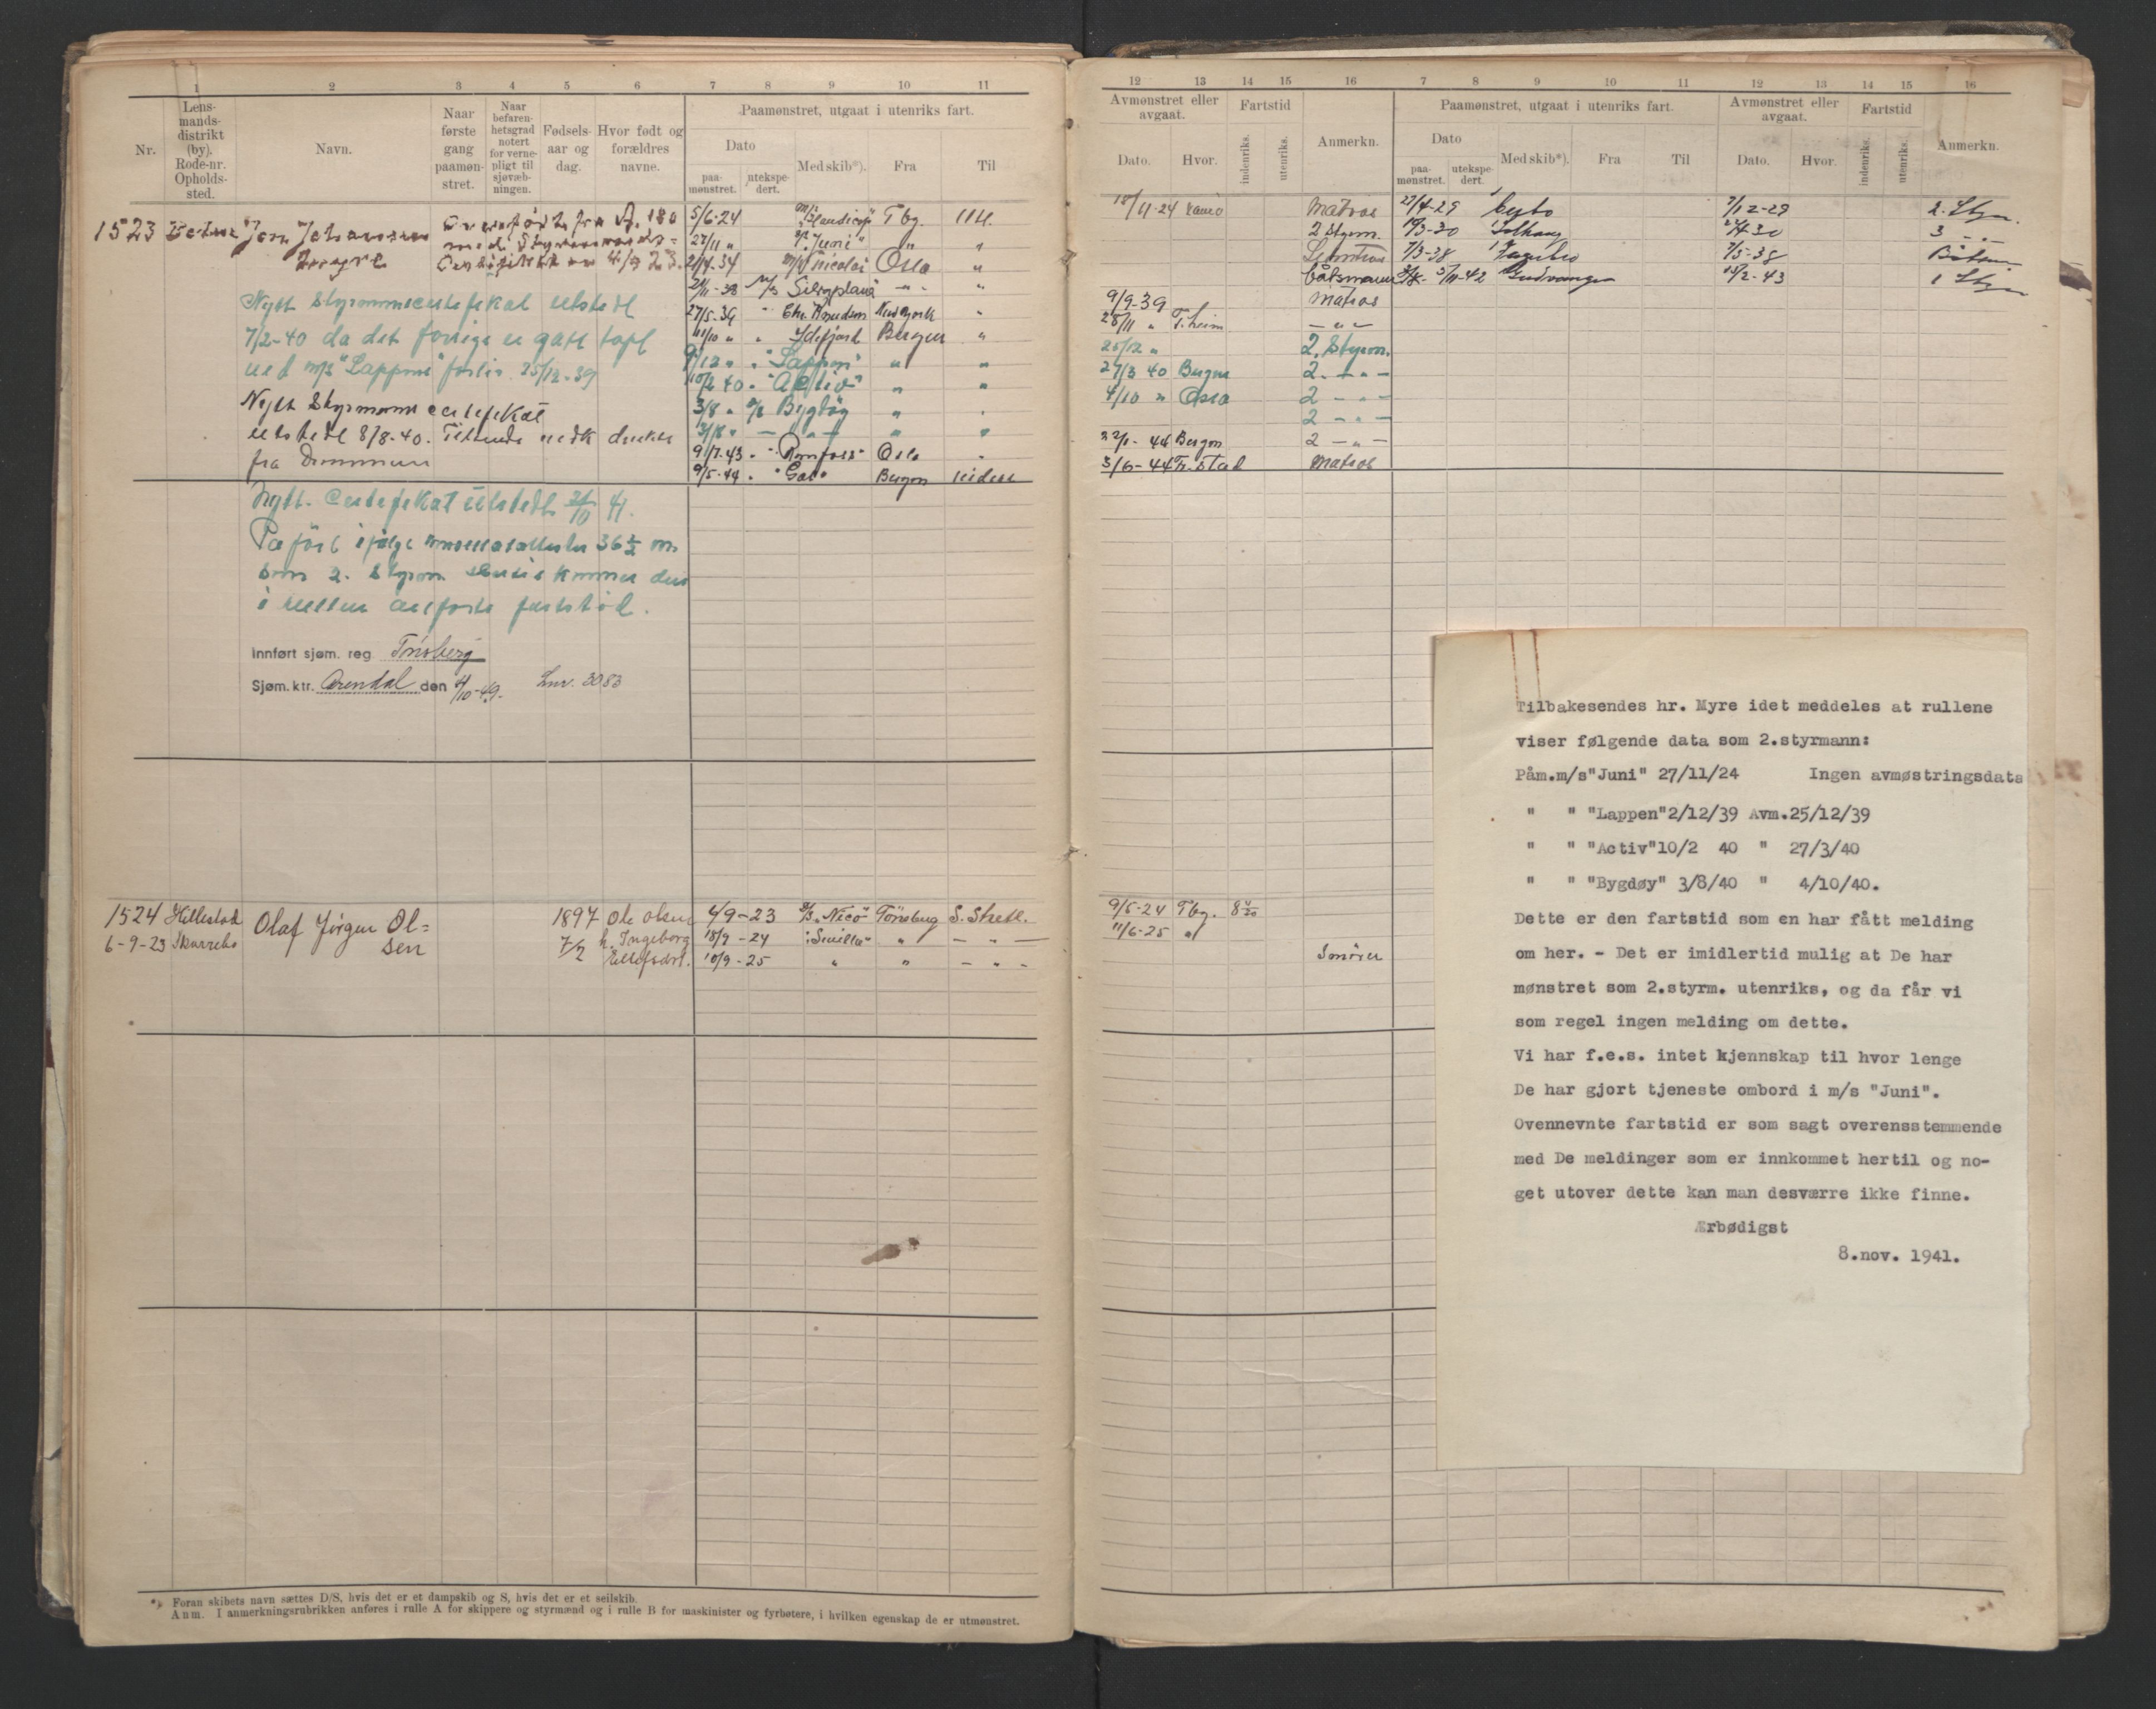 1 2 3 4 5 6 7 8 9 10 11
Nr.
Lens-
mands-
distrikt
(by).
Rode-nr.
Opholds-
sted.
Navn.
Naar
første
gang
paamøn-
stret.
Naar
befaren-
hetsgrad
notert
for verne-
pligt til
sjøvæb-
ningen.
Fødsels-
aar og
dag.
Hvor født og
forældres
navne.
Paamønstret, utgaat i utenriks fart.
Dato
paa-
mønstret.
utekspe-
dert.
Med skib*).
Fra
Til
1523
Overført fra A. 180
med Styrmannds-
5/6-24 Tbg. Utl.
27/11 " "Juni" " "
21/4-34 Nicolai Oslo "
-38 M/S Silvaplana - " - "
27/5-39 " Chr. Knudsen Newyork "
11/10 " " Idefjord Bergen "
2/12 " " "Lappen" " "
10/2 40 " "Activ" " "
3/8 " Bygdøy " "
3/8 " — " — " "
9/7-43 " Oslo "
9/5-44 " Bergen
Nytt Styrmannscertefikat utstedt
7/2-40 da det forrige er gått tapt
ved m/s "Lappen" forlis 25/12-39
Nytt Styrmanns certefikat
utstedt 8/8-40.
fra
Nytt certefikat utstedt 41.
Påført ifølge 36
som 2. Styrm
i fartstid.
Innført sjøm. reg Tønsberg
Sjøm.ktr. Arendal den 4/10-49. Lnr. 3083
1524 Hillestad Olaf Jörgen Ol=
sen
6-9-23
1897 Ole Olsen
7/2 h. Ingeborg
4/9-23 "Nico" Tönsberg S. Shetl.
18/9-24 " — " —
10/9-25 " " — " -
*) Foran skibets navn sættes D/S, hvis det er et dampskib og S, hvis det er et seilskib.
Anm. I anmerkningsrubrikken anføres i rulle A for skippere og styrmænd og i rulle B for maskinister og fyrbøtere, i hvilken egenskap de er utmønstret.
12 13 14 15 16 7 8 9 10 11 12 13 14 15 16
Avmønstret eller
avgaat.
Dato.
Hvor.
Fartstid
indenriks.
utenriks.
Anmerkn.
Paamønstret, utgaat i utenriks fart.
Dato
paa-
mønstret.
utekspe-
dert.
Med skib*).
Fra
Til
Avmønstret eller
avgaat.
Dato.
Hvor.
Fartstid
indenriks.
utenriks.
Anmerkn.
18/11-24 Matros 27/4-29 7/12-29 2. Styrm.
2 Styrm. 19/3-30 Solhaug 3 — " —
7/3-38 7/5-38
Båtsmann 5/11-42 Gudvangen 15/2-43 1 Styrm
9/9-39 Matros
28/11 " T.heim — " —
25/12 " 2. Styrm.
27/3 40 Bergen 2. — " —
4/10 " Oslo 2 — " —
2 — " —
22/1-44 Bergen 2 — " —
3/6-44 Fr.stad Matros
9/5-24 Tbg.
11/6-25 "
Tilbakesendes hr. Myre idet meddeles at rullene
viser følgende data som 2.styrmann:
Påm.m/s"Juni" 27/11/24 Ingen avmøstringsdata
" " "Lappen"2/12/39 Avm.25/12/39
" " "Activ"10/2 40 " 27/3/40
" " "Bygdøy" 3/8/40 " 4/10/40.
Dette er den fartstid som en har fått melding
om her. - Det er imidlertid mulig at De har
mønstret som 2.styrm. utenriks, og da får vi
som regel ingen melding om dette.
Vi har f.e.s. intet kjennskap til hvor lenge
De har gjort tjeneste ombord i m/s "Juni".
Ovennevnte fartstid er som sagt overensstemmende
med De meldinger som er innkommet hertil og no-
get utover dette kan man desværre ikke finne.
Ærbødigst
8.nov. 1941.